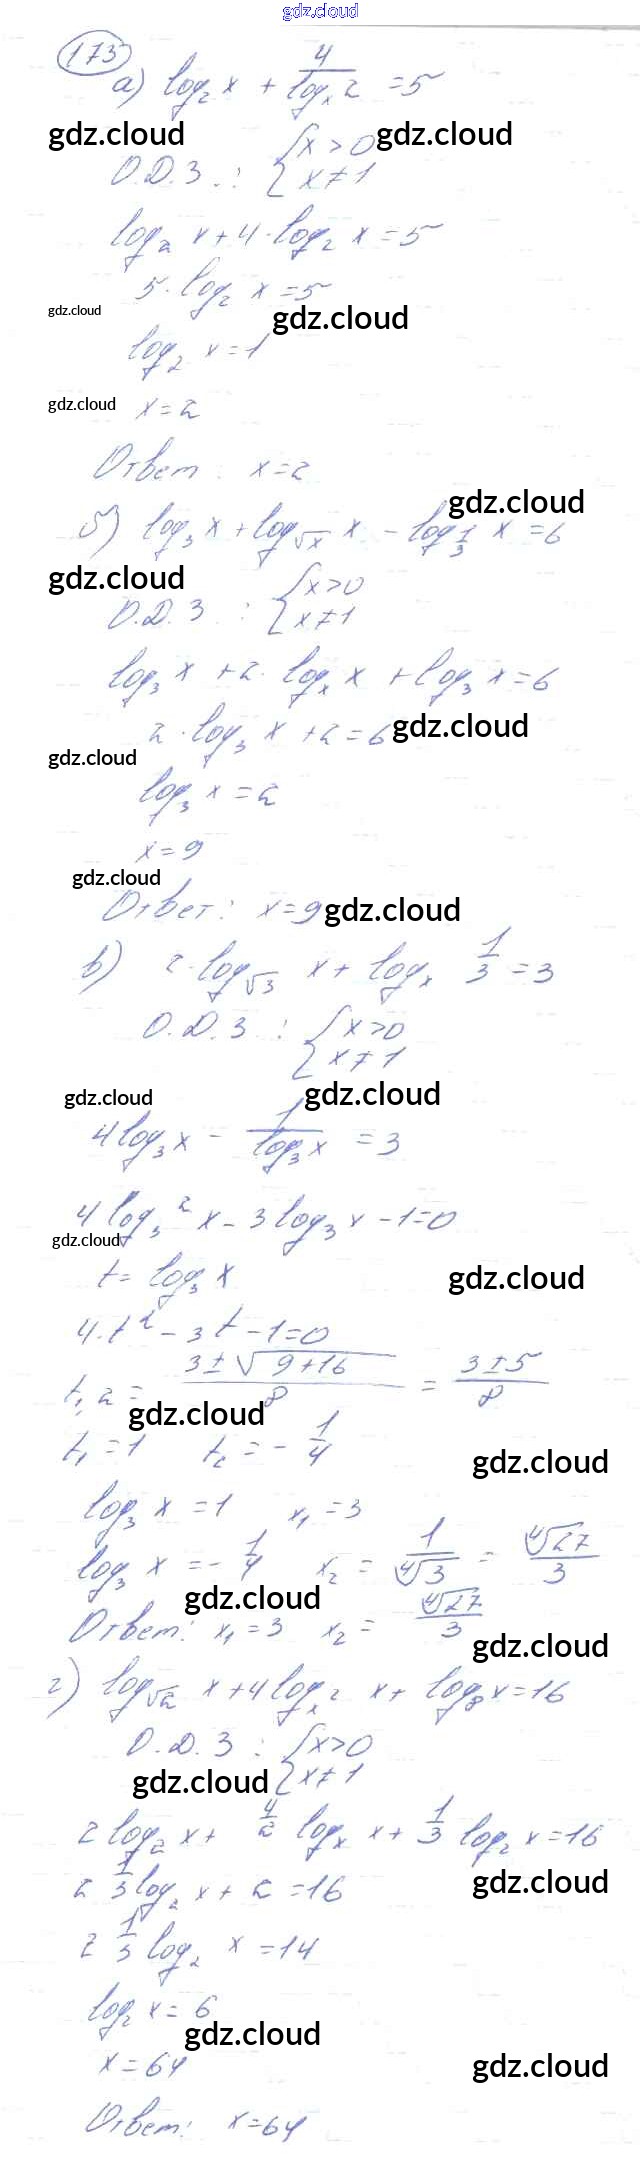 gdz.cloud
173
а) log₂ x + 4/(logₓ 2) = 5
gdz.cloud gdz.cloud
О.Д.З.: { x > 0
x ≠ 1
log₂ x + 4 · log₂ x = 5
5 · log₂ x = 5
gdz.cloud gdz.cloud
log₂ x = 1
gdz.cloud x = 2
Ответ: x = 2
gdz.cloud
б) log₃ x + log_√x x - log_1/3 x = 6
gdz.cloud
О.Д.З: { x > 0
x ≠ 1
log₃ x + 2 · logₓ x + log₃ x = 6
2 · log₃ x + 2 = 6 gdz.cloud
gdz.cloud
log₃ x = 2
x = 9
gdz.cloud
Ответ: x = 9 gdz.cloud
в) 2 · log_√3 x + logₓ 1/3 = 3
О.Д.З: { x > 0
x ≠ 1
gdz.cloud gdz.cloud
4 log₃ x - 1/(log₃ x) = 3
4 log₃² x - 3 log₃ x - 1 = 0
gdz.cloud
t = log₃ x gdz.cloud
4 · t² - 3t - 1 = 0
t₁,₂ = (3 ± √(9 + 16))/8 = (3 ± 5)/8
gdz.cloud
t₁ = 1 t₂ = - 1/4
gdz.cloud
log₃ x = 1 x₁ = 3
log₃ x = - 1/4 x₂ = 1/⁴√3 = ⁴√27/3
gdz.cloud
Ответ: x₁ = 3 x₂ = ⁴√27/3
gdz.cloud
г) log_√2 x + 4 log_x² x + log₈ x = 16
О.Д.З: { x > 0
x ≠ 1
gdz.cloud
2 log₂ x + 4/2 logₓ x + 1/3 log₂ x = 16
2 1/3 log₂ x + 2 = 16 gdz.cloud
2 1/3 log₂ x = 14
log₂ x = 6
gdz.cloud
x = 64 gdz.cloud
Ответ: x = 64